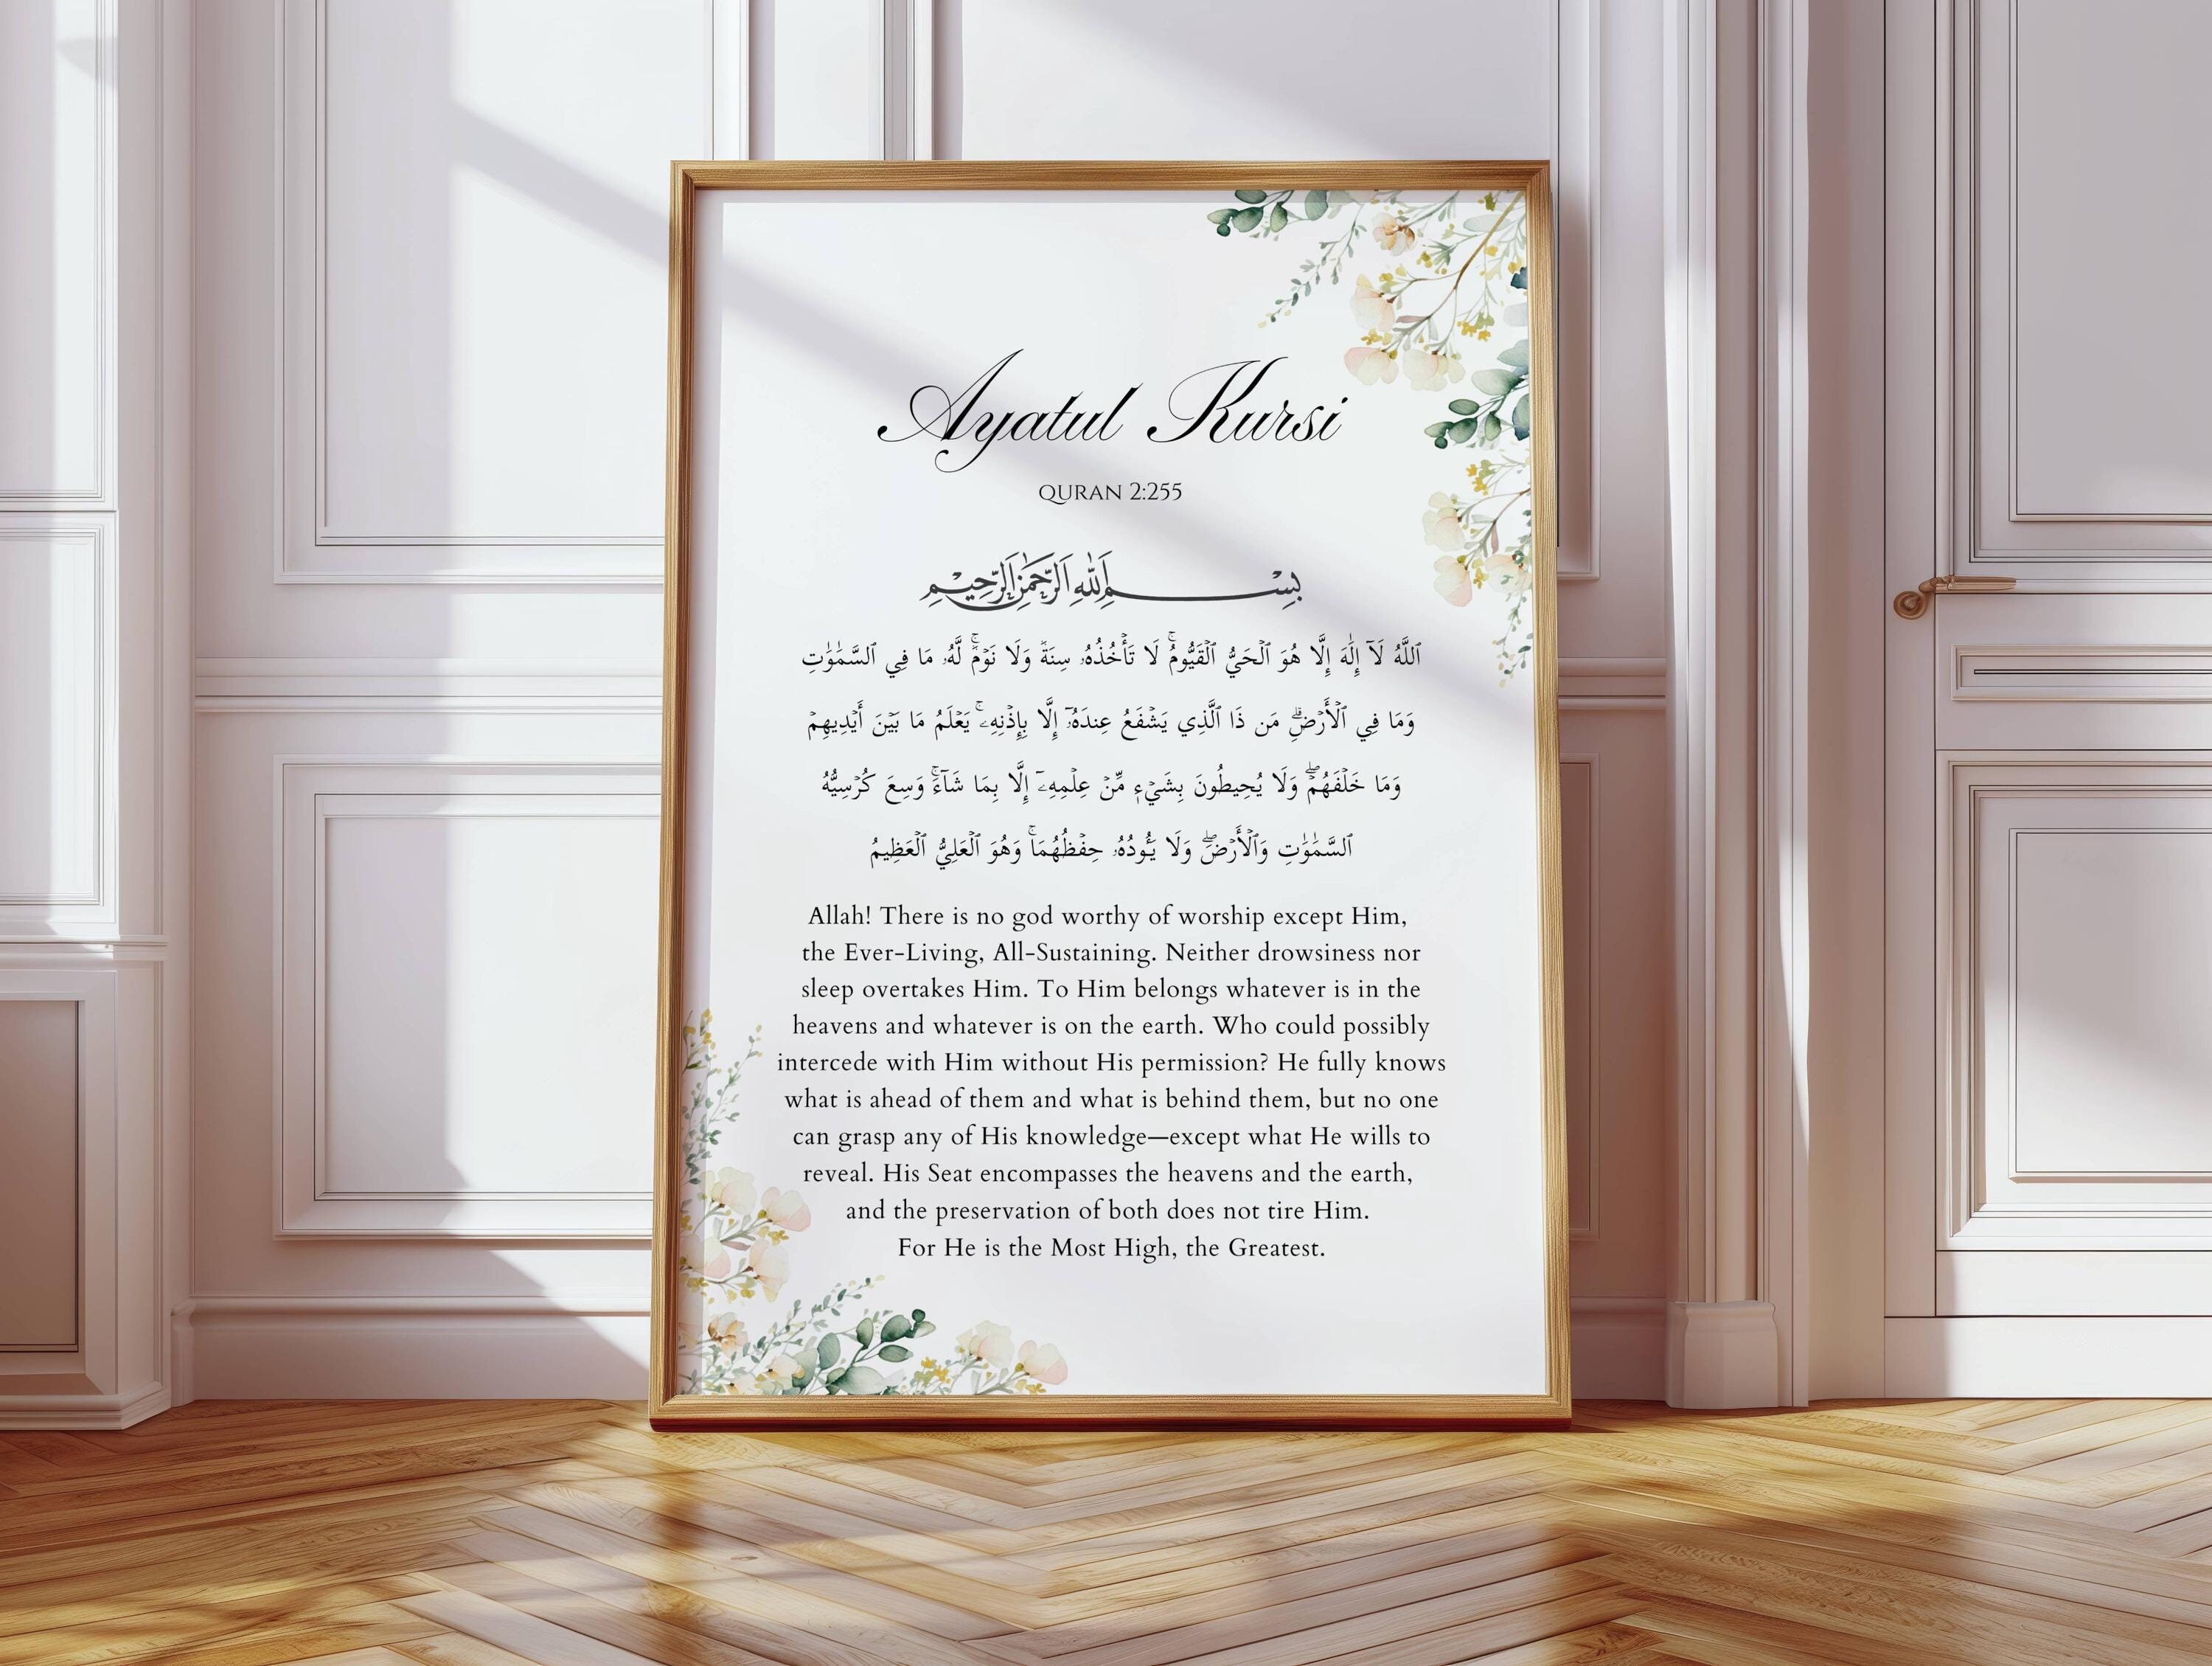 Ayatul Kursi
QURAN 2:255
بِسْمِ اللَّهِ الرَّحْمَٰنِ الرَّحِيمِ
ٱللَّهُ لَآ إِلَٰهَ إِلَّا هُوَ ٱلْحَيُّ ٱلْقَيُّومُ ۚ لَا تَأْخُذُهُۥ سِنَةٌ وَلَا نَوْمٌ ۚ لَّهُۥ مَا فِي ٱلسَّمَٰوَٰتِ
وَمَا فِي ٱلْأَرْضِ ۗ مَن ذَا ٱلَّذِي يَشْفَعُ عِندَهُۥٓ إِلَّا بِإِذْنِهِۦ ۚ يَعْلَمُ مَا بَيْنَ أَيْدِيهِمْ
وَمَا خَلْفَهُمْ ۖ وَلَا يُحِيطُونَ بِشَيْءٍ مِّنْ عِلْمِهِۦٓ إِلَّا بِمَا شَآءَ ۚ وَسِعَ كُرْسِيُّهُ
ٱلسَّمَٰوَٰتِ وَٱلْأَرْضَ ۖ وَلَا يَـُٔودُهُۥ حِفْظُهُمَا ۚ وَهُوَ ٱلْعَلِيُّ ٱلْعَظِيمُ
Allah! There is no god worthy of worship except Him,
the Ever-Living, All-Sustaining. Neither drowsiness nor
sleep overtakes Him. To Him belongs whatever is in the
heavens and whatever is on the earth. Who could possibly
intercede with Him without His permission? He fully knows
what is ahead of them and what is behind them, but no one
can grasp any of His knowledge—except what He wills to
reveal. His Seat encompasses the heavens and the earth,
and the preservation of both does not tire Him.
For He is the Most High, the Greatest.